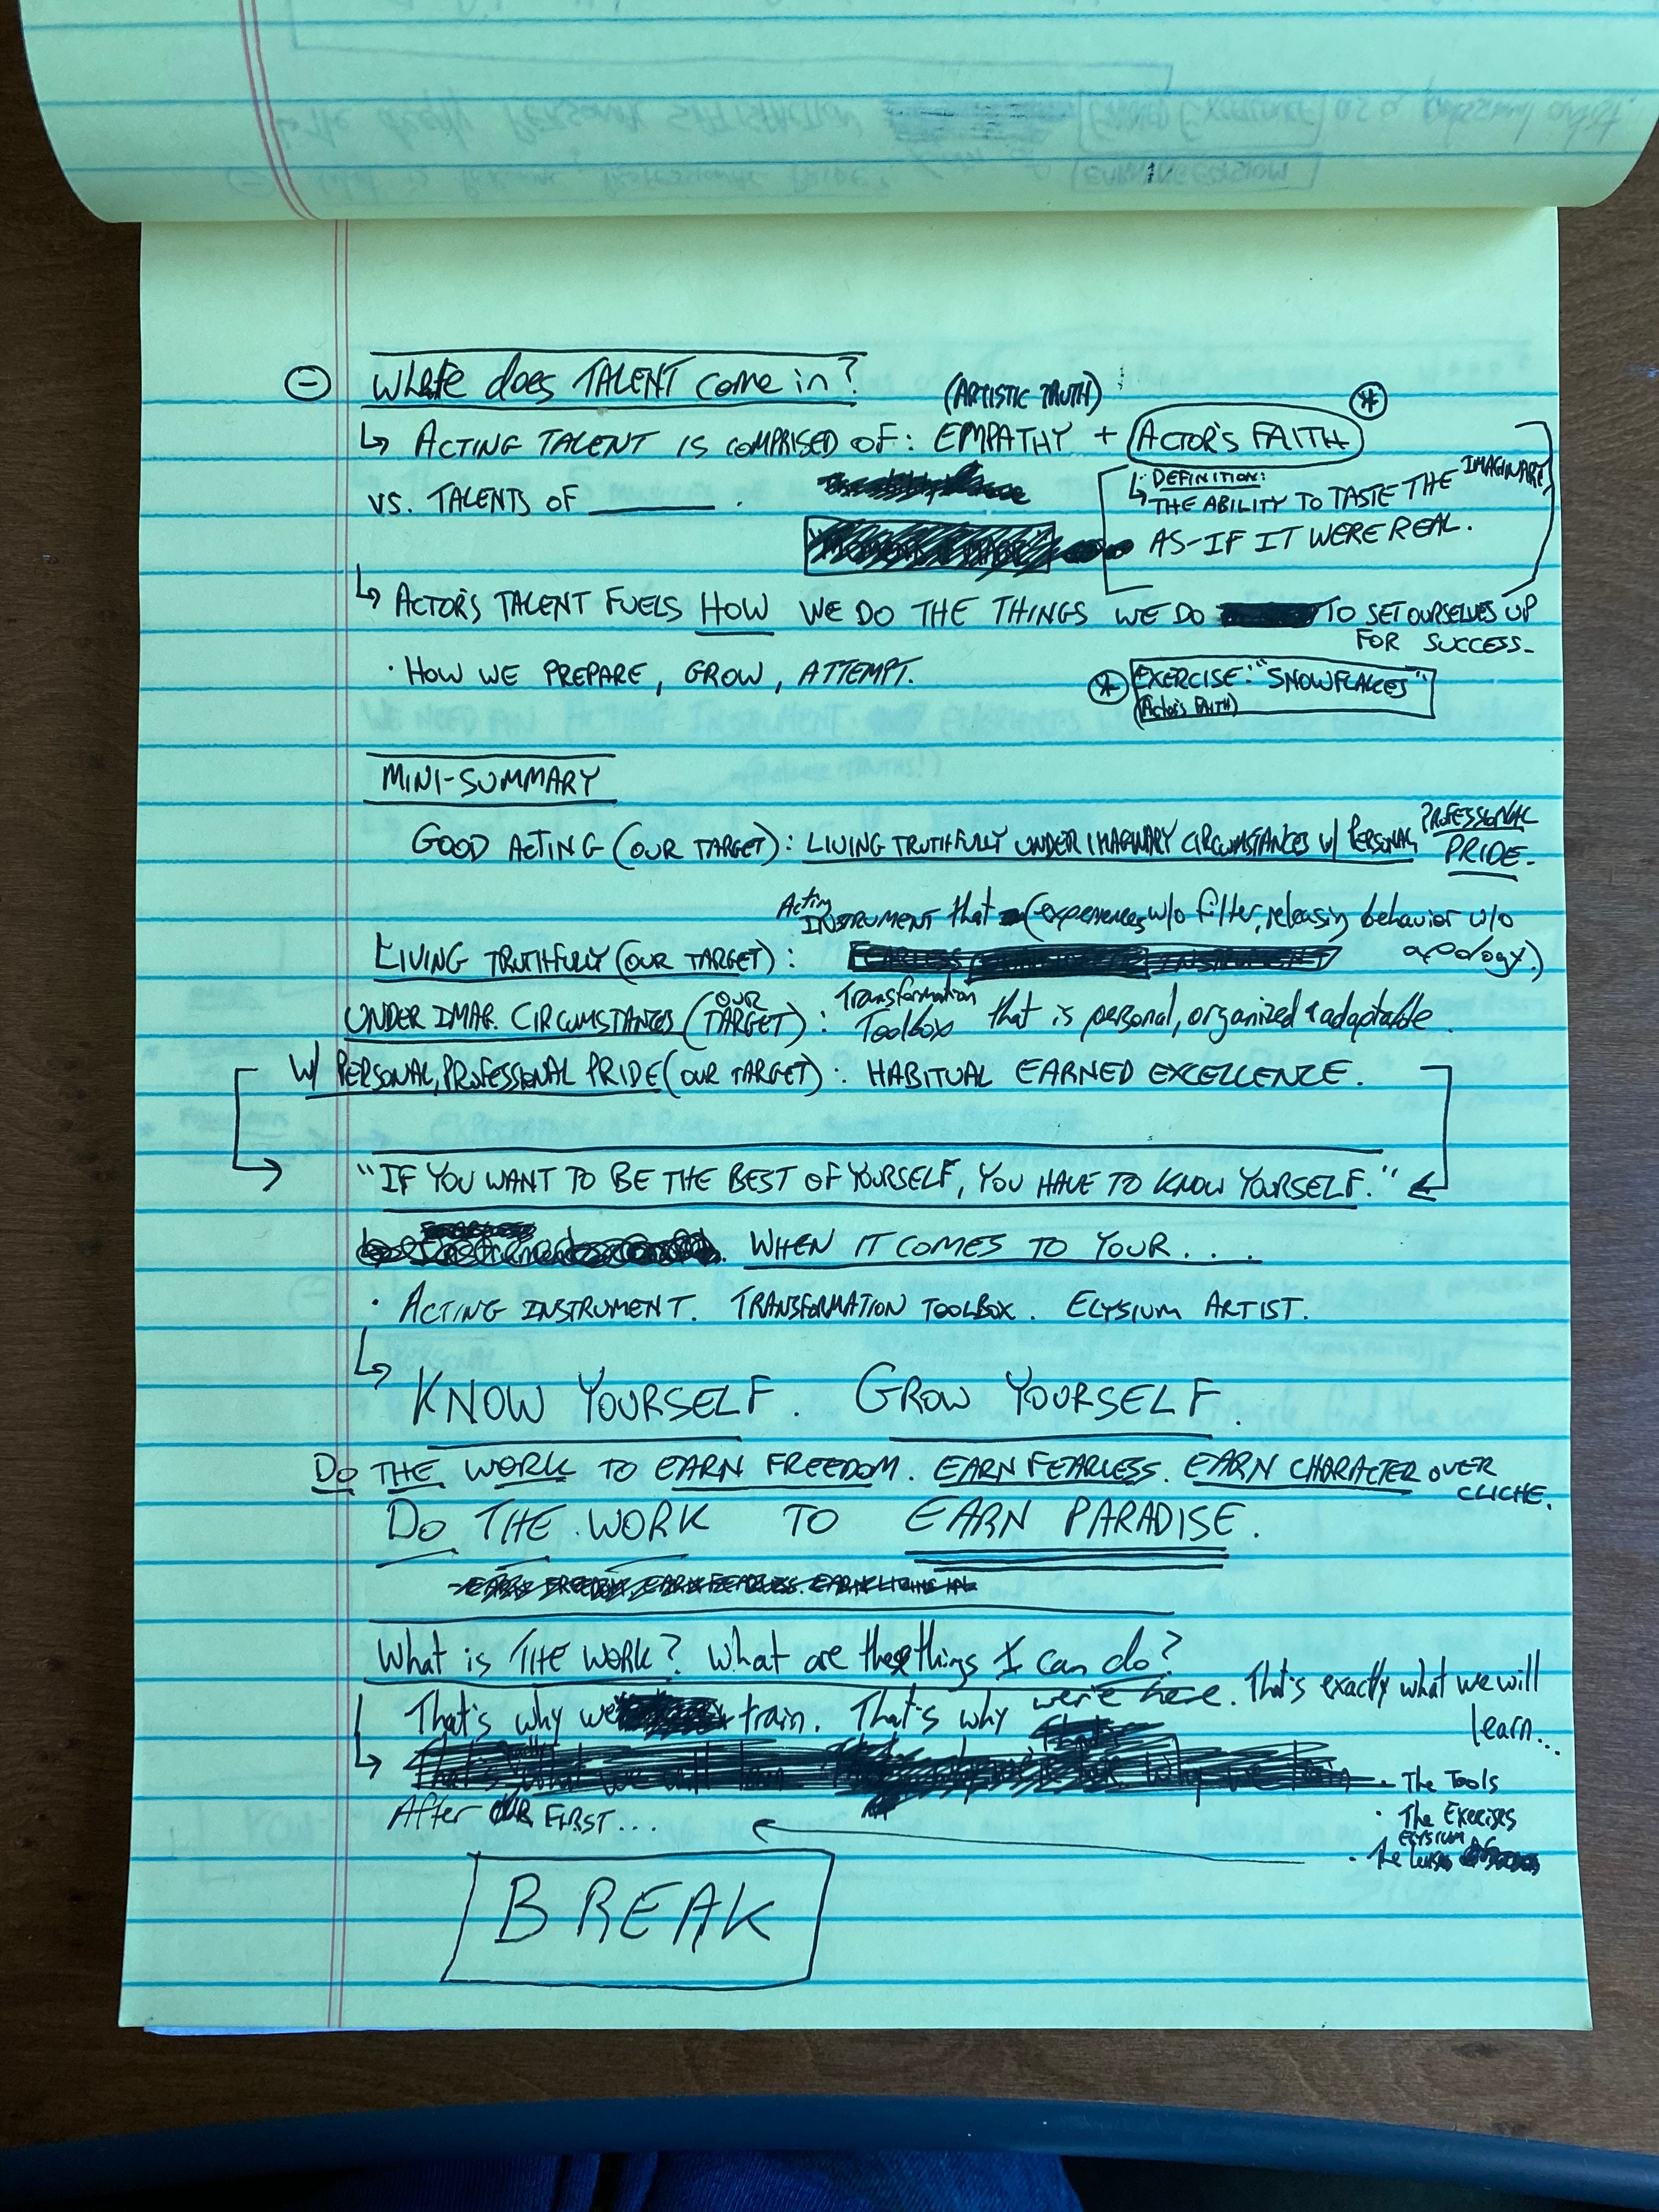 Where does TALENT come in?
(ARTISTIC TRUTH)
↳ ACTING TALENT IS COMPRISED OF: EMPATHY + ACTOR'S FAITH *
VS. TALENTS OF ______ .
↳ DEFINITION:
THE ABILITY TO TASTE THE IMAGINARY
AS-IF IT WERE REAL.
↳ ACTOR'S TALENT FUELS HOW WE DO THE THINGS WE DO TO SET OURSELVES UP
FOR SUCCESS.
· HOW WE PREPARE, GROW, ATTEMPT.
* EXERCISE: "SNOWFLAKES"
(ACTOR'S FAITH)
MINI-SUMMARY
GOOD ACTING (OUR TARGET): LIVING TRUTHFULLY UNDER IMAGINARY CIRCUMSTANCES W/ PERSONAL, PROFESSIONAL
PRIDE.
Acting
INSTRUMENT that (experiences w/o filter, releasing behavior w/o
apology.)
LIVING TRUTHFULLY (OUR TARGET): FEARLESS INSTRUMENT
UNDER IMAG. CIRCUMSTANCES (OUR TARGET): Transformation Toolbox that is personal, organized & adaptable.
W/ PERSONAL, PROFESSIONAL PRIDE (OUR TARGET): HABITUAL EARNED EXCELLENCE.
"IF YOU WANT TO BE THE BEST OF YOURSELF, YOU HAVE TO KNOW YOURSELF."
WHEN IT COMES TO YOUR....
· ACTING INSTRUMENT. TRANSFORMATION TOOLBOX. ELYSIUM ARTIST.
↳ KNOW YOURSELF. GROW YOURSELF.
DO THE WORK TO EARN FREEDOM. EARN FEARLESS. EARN CHARACTER OVER
CLICHE.
DO THE WORK TO EARN PARADISE.
EARN FREEDOM. EARN FEARLESS. EARN LIVING IN
What is THE WORK? What are these things I can do?
↳ That's why we train. That's why we're here. That's exactly what we will
learn...
· The Tools
After OUR FIRST...
· The Exercises
· The ELYSIUM
BREAK